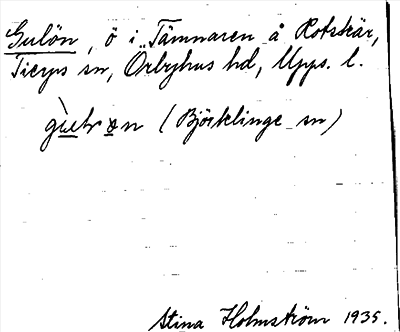 Gulön, ö i Tämnaren å Rotskär,
Tierps sn, Örbyhus hd, Upps. l.
(Björklinge sn)
Stina Holmström 1935.